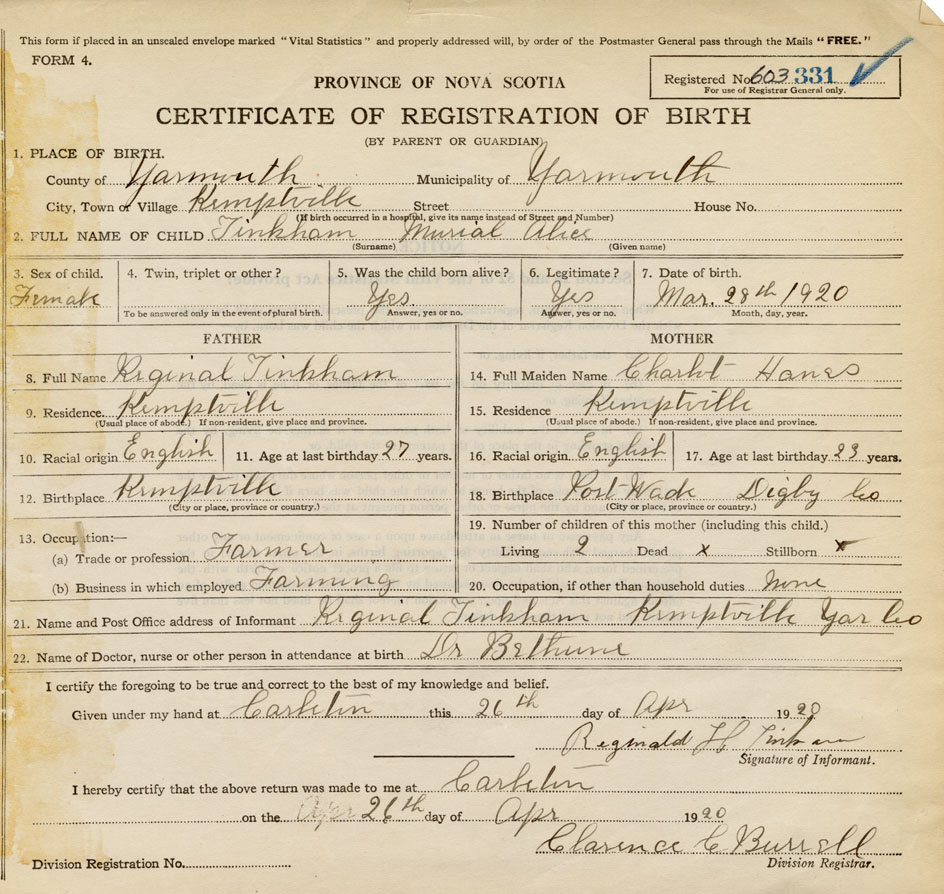 This form if placed in an unsealed envelope marked "Vital Statistics" and properly addressed will, by order of the Postmaster General pass through the Mails "FREE."
FORM 4.
Registered No. 603 331
For use of Registrar General only.
PROVINCE OF NOVA SCOTIA
CERTIFICATE OF REGISTRATION OF BIRTH
(BY PARENT OR GUARDIAN)
1. PLACE OF BIRTH.
County of Yarmouth Municipality of Yarmouth
City, Town or Village Kemptville Street House No.
(If birth occurred in a hospital, give its name instead of Street and Number)
2. FULL NAME OF CHILD Tinkham Murial Alice
(Surname) (Given name)
3. Sex of child. 4. Twin, triplet or other? 5. Was the child born alive? 6. Legitimate? 7. Date of birth.
Female Yes. Yes Mar. 28th 1920
To be answered only in the event of plural birth. Answer, yes or no. Answer, yes or no. Month, day, year.
FATHER MOTHER
8. Full Name Reginal Tinkham 14. Full Maiden Name Charlot Hanes
9. Residence. Kemptville 15. Residence Kemptville
(Usual place of abode.) If non-resident, give place and province. (Usual place of abode.) If non-resident, give place and province.
10. Racial origin English 11. Age at last birthday 27 years. 16. Racial origin English 17. Age at last birthday 23 years.
12. Birthplace Kemptville 18. Birthplace Post Wade Digby Co
(City or place, province or country.) (City or place, province or country.)
13. Occupation:— 19. Number of children of this mother (including this child.)
(a) Trade or profession Farmer Living 2 Dead x Stillborn x
(b) Business in which employed Farming 20. Occupation, if other than household duties None
21. Name and Post Office address of Informant Reginal Tinkham Kemptville Yar Co
22. Name of Doctor, nurse or other person in attendance at birth Dr Bethune
I certify the foregoing to be true and correct to the best of my knowledge and belief.
Given under my hand at Carleton this 26th day of Apr 1920
Reginald H Tinkham
Signature of Informant.
I hereby certify that the above return was made to me at Carleton
on the Apr 26th day of Apr 1920
Clarence C Burrell
Division Registration No. Division Registrar.